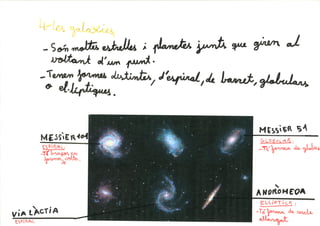 4-Les galàxies
- Són moltes estrelles i planetes junts que giren al
voltant d'un punt.
- Tenen formes distintes, d'espiral, de barret, globulars
o el·líptiques.
MESSIER 101
ESPIRAL
-Té braços en
forma
MESSIER 51
GLOBULAR
-Té forma de globus
VIA LÀCTIA
ESPIRAL
ANDRÒMEDA
EL·LÍPTICA:
-Té forma de cercle
allargat